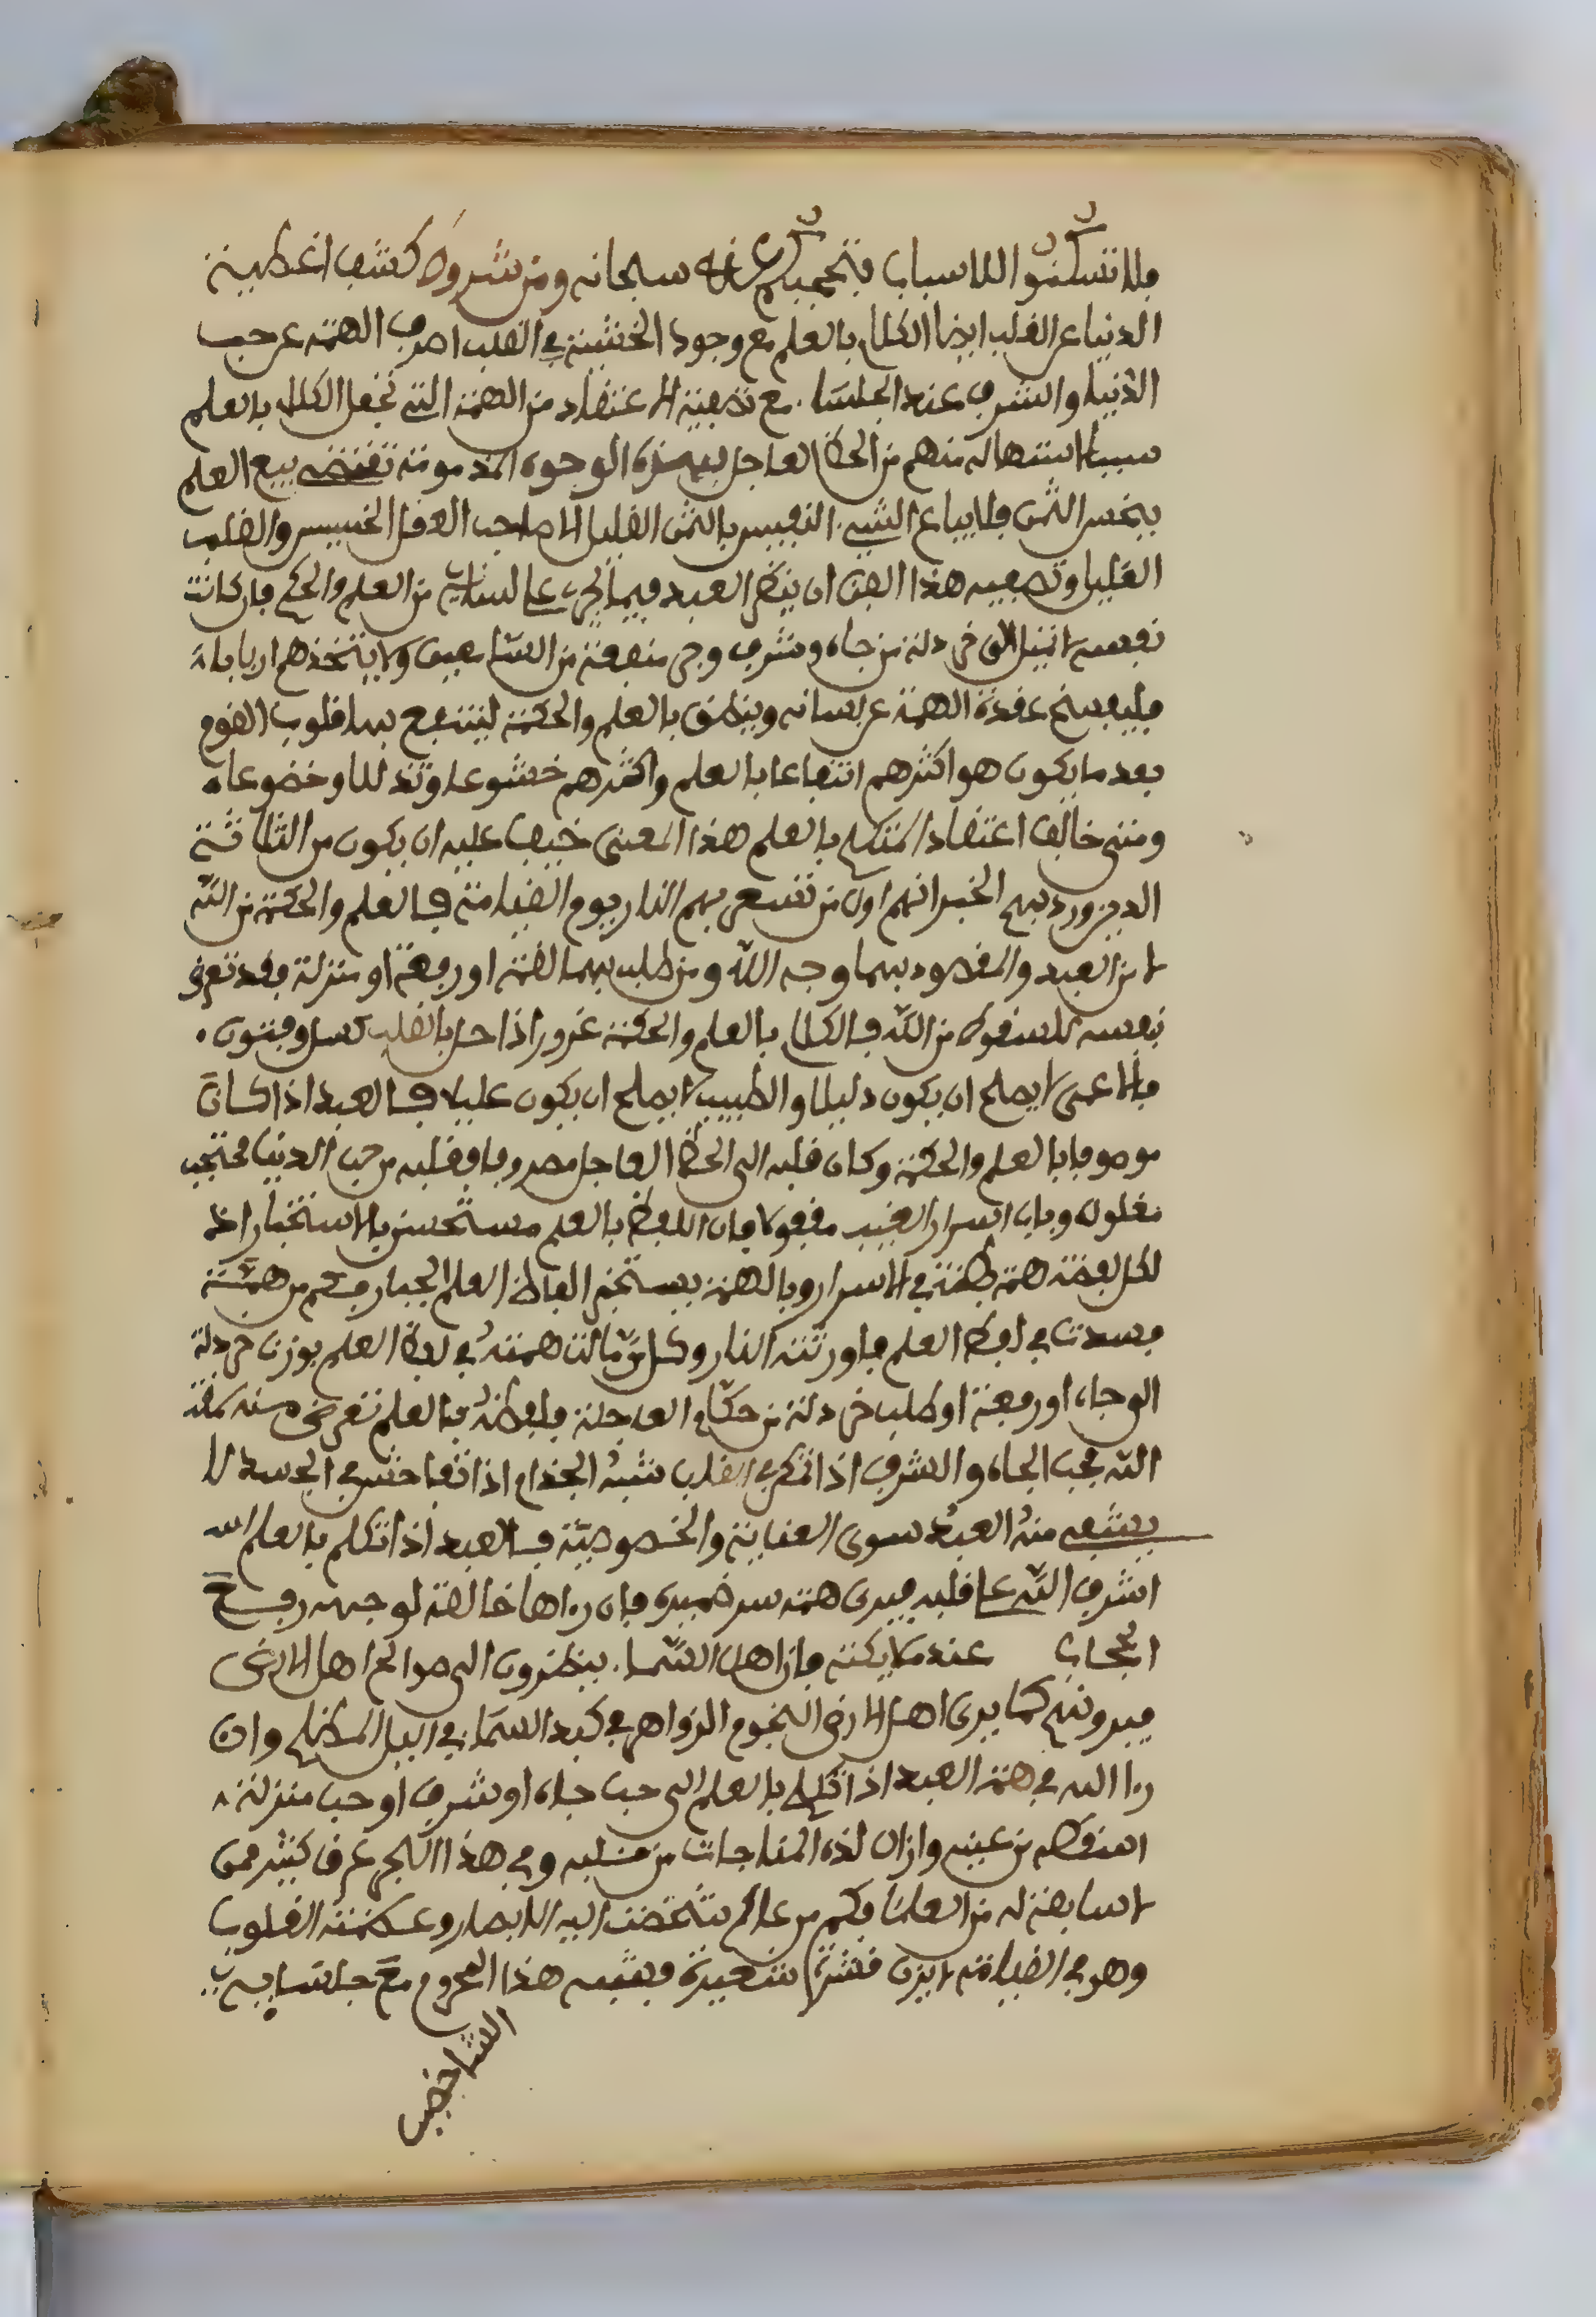 فلا تسكنوا للاسباب فتحجبكم عن الله سبحانه ومن شروط كشف اغطية
الدنيا عن القلب ايضا الكلام بالعلم مع وجود الخشية في القلب اصرف الهمة عن حب
الدنيا والشرف عند الجلساء مع تصفية الاعتقاد من الهمة التي تجعل الكلام بالعلم
سببا استنهاله منهم من الحظ العاجل فهذه الوجوه المذمومة تقتضي بيع العلم
ببخس الثمن فلا يباع الشيء النفيس بالثمن القليل الا صاحب العقل الخسيس والقلب
العليل وتصفيه هذا الفن ان ينظر العبد فيما يجري على لسانه من العلم والحكم فان كانت
نفسه لا تنيل الى خردلة من جاه وشرف وجر منفعة من السامعين ولا يتخذهم اربابا
فليفسخ عقدة الهمة عن لسانه وينطق بالعلم والحكمة لينتفع بها قلوب القوم
بعد ما يكون هو اكثرهم انتفاعا بالعلم واكثرهم خشوعا وتذللا وخضوعا
ومتى خالف اعتقاد المتكلم بالعلم هذا المعنى خيف عليه ان يكون من الثلاثة
الذين ورد فيهم الخبر انهم اول من تسعر بهم النار يوم القيامة فالعلم والحكمة من الله
لا من العبد والمقصود بهما وجه الله ومن طلب بهما لقمة او رفعة او منزلة فقد تعرض
نفسه للسقوط من الله فالكلام بالعلم والحكمة غرور اذا حل بالقلب كسل وفتون
فالاعمى لا يصلح ان يكون دليلا والطبيب لا يصلح ان يكون عليلا فالعبد اذا كان
موصوفا بالعلم والحكمة وكان قلبه الى الحظ العاجل مصروفا فقلبه من حب الدنيا محتجب
مغلول وباب اسرار الغيب مقفولا فان اللفظ بالعلم مستحسن بالاستخبار اذ
لكل لفظة همة بطنة في الاسرار وبالهمة يستخبر الفاظ العلم الجبار فكم من همة
فسدت في لفظ العلم فاورثته النار وكل من مالت همته في لفظ العلم بوزن خردلة
الوجاه او رفعة او طلب خردلة من حطام العاجلة فلفظه بالعلم تعرض منه لمقت
الله فحب الجاه والشرف اذا تمكن في القلب شبه الجذام اذا تفاحش في الجسد لا
يشفي منه العبد سوى العناية والخصوصية فالعبد اذا تكلم بالعلم لله
اشرف الله على قلبه فيرى همته سر ضميره فان رءاها خالصة لوجهه رفع
الحجاب عند ملايكته فان اهل السماء ينظرون الى صوالح اهل الارض
فيرونهم كما يرى اهل الارض النجوم الزواهر في كبد السماء في اليل المظلم وان
رءا الله في همة العبد اذا تكلم بالعلم الى حب جاه او شرف او حب منزلة
اسقطه من عينه وازال لذة المناجات من قلبه وفي هذا البحر غرق كثير ممن
لا سابقة له من العلماء فكم من عالم شخصت اليه الابصار وعظمته القلوب
وهو في القيامة لا يزن قشرة شعيرة فشبه هذا المحروم مع جلسايه
الشاخص